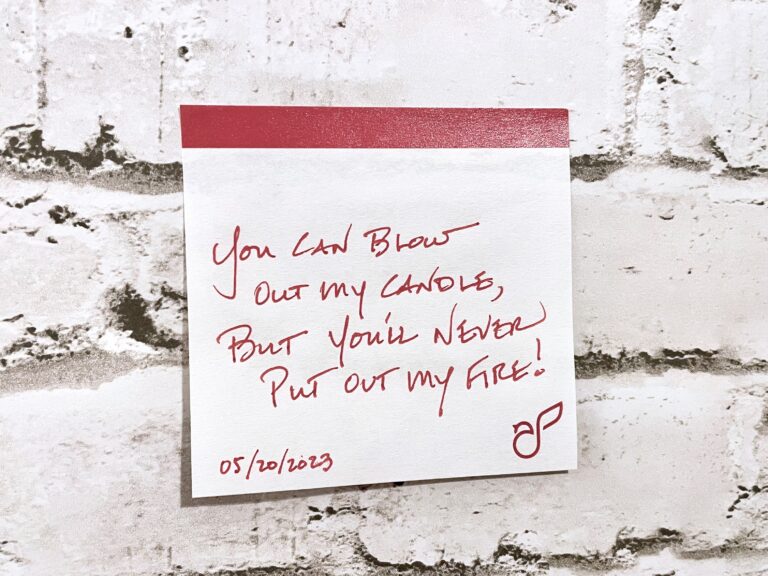 You can Blow
out my candle,
But you'll never
Put out my fire!
05/20/2023